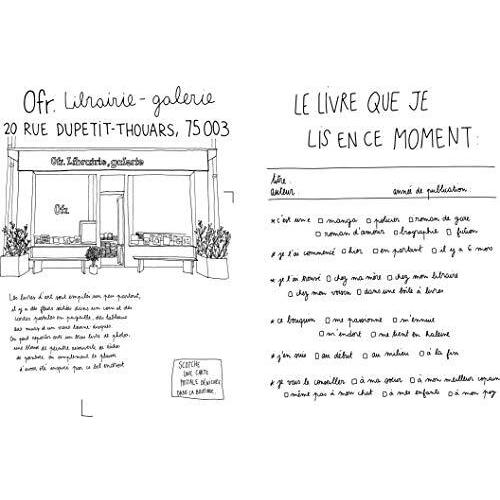 Ofr. Librairie-galerie
20 RUE DUPETIT-THOUARS, 75003
Ofr. Librairie, galerie
Ofr.
Les livres d'art sont empilés un peu partout,
il y a des fleurs séchées dans un coin et des
cartes postales en pagaille, des tableaux
aux murs et un vieux banc
On peut repartir avec un livre de photos,
une de peintre
de gambader ou simplement le plaisir
d'avoir été inspiré par ce bel endroit.
SCOTCHE
UNE CARTE
POSTALE DÉNICHÉE
DANS LA BOUTIQUE.
LE LIVRE QUE JE
LIS EN CE MOMENT:
titre:
auteur année de publication
*c'est un·e manga policier roman de gare
roman d'amour biographie fiction
*je l'ai commencé hier en partant il y a 6 mois
*je l'ai trouvé chez ma mère chez mon libraire
chez mon voisin dans une boîte à livres
*ce bouquin me passionne m'ennuie
m'endort me tient en haleine
*j'en suis au début au milieu à la fin
*je vais le conseiller à ma sœur à mon meilleur copain
même pas à mon chat à mes enfants à mon psy